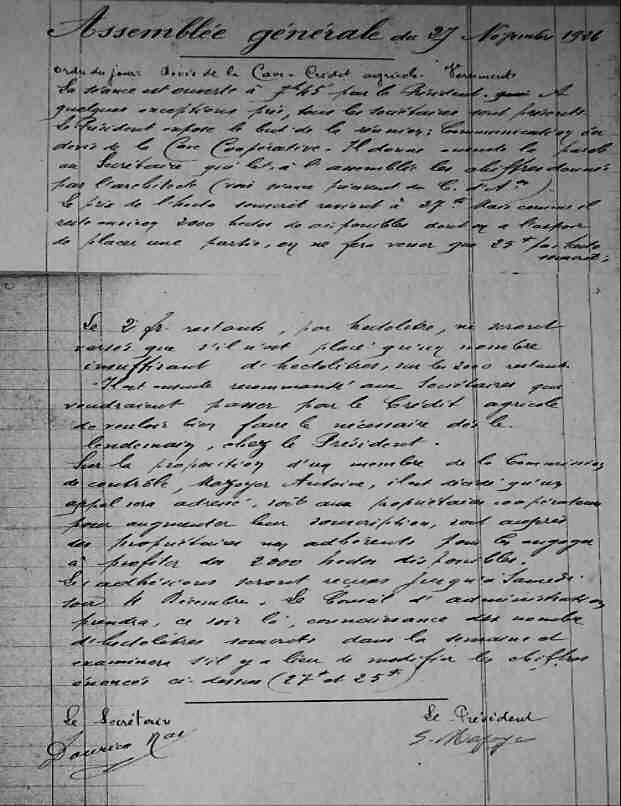 Assemblée générale du 27 Novembre 1926
Ordre du jour: Devis de la Cave - Crédit agricole - Versements
La séance est ouverte à 7h45 par le Président. A
quelques exceptions près, tous les sociétaires sont présents
Le Président expose le but de la réunion: Communication du
devis de la Cave Coopérative. Il donne ensuite la parole
au Secrétaire qui lit à l'assemblée les chiffres donnés
par l'architecte (voir séance du C. d'Aon)
Le prix de l'hecto souscrit revient à 27f Mais comme il
reste environ 2000 hectos disponibles dont on a l'espoir
de placer une partie, on ne fera verser que 25f par hecto
souscrit.
Le 2 fr. restants, par hectolitre, ne seront
versés que s'il n'est placé qu'un nombre
insuffisant d'hectolitres, sur les 2000 restants.
Il est ensuite recommandé aux Sociétaires qui
voudraient passer par le Crédit agricole
de vouloir bien faire le nécessaire dès le
lendemain, chez le Président.
Sur la proposition d'un membre de la Commission
de contrôle, Mazoyer Antoine, il est décidé qu'un
appel sera adressé, soit aux propriétaires coopérateurs
pour augmenter leur souscription, soit auprès
des propriétaires non adhérents pour les engager
à profiter des 2000 hectos disponibles.
Les adhésions seront reçues jusqu'à Samedi
soir 4 Décembre. Le Conseil d'administration
prendra, ce soir là, connaissance du nombre
d'hectolitres souscrits dans la semaine et
examinera s'il y a lieu de modifier les chiffres
énoncés ci-dessus (27f et 25f)
Le Secrétaire
Le Président